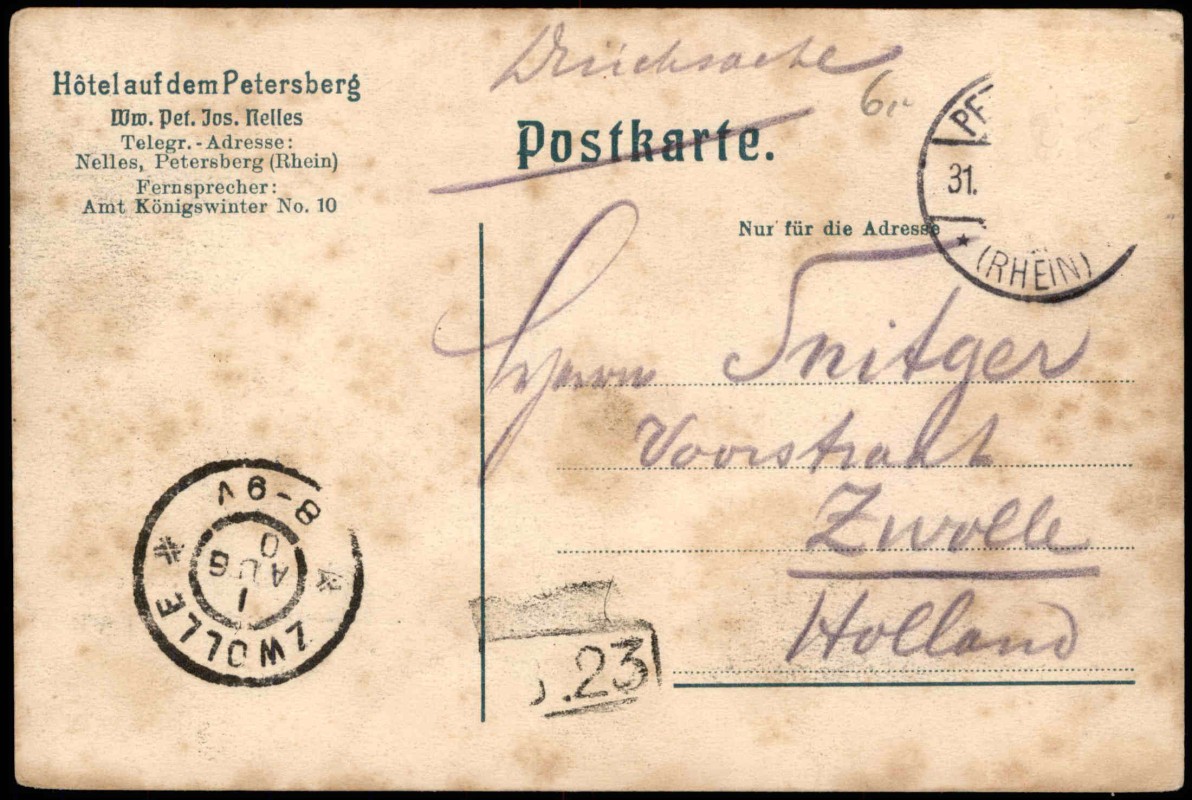 Drucksache
6.-
Hôtel auf dem Petersberg
Ww. Pet. Jos. Nelles
Telegr.-Adresse:
Nelles, Petersberg (Rhein)
Fernsprecher:
Amt Königswinter No. 10
Postkarte.
Nur für die Adresse
PET
31.
(RHEIN)
Herrn Snitger
Voorstraat
Zwolle
Holland
8-9 V
1 AUG 0
ZWOLLE
.23